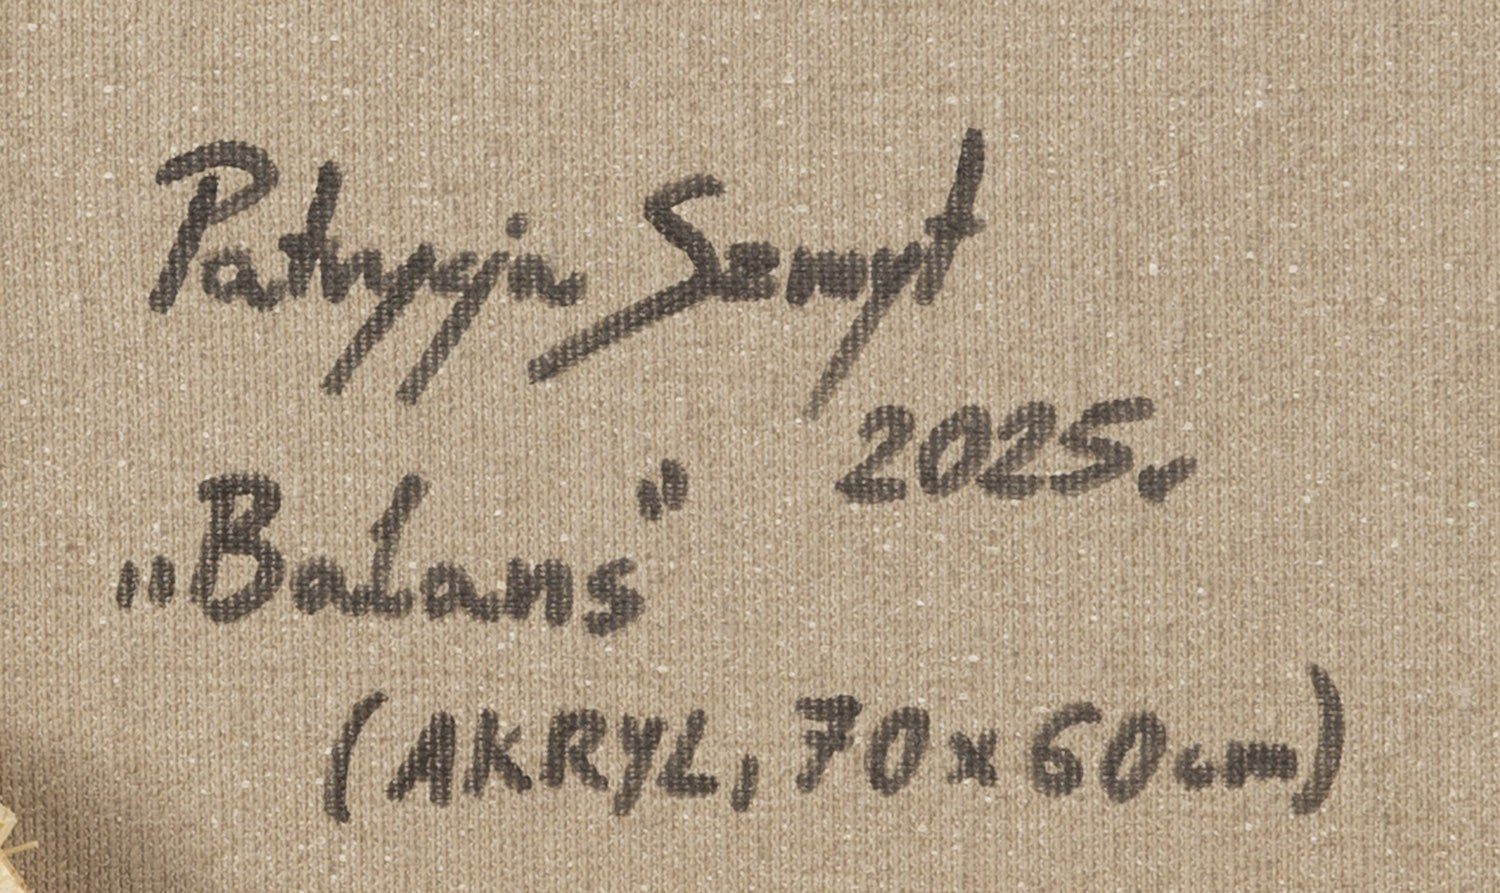 Patrycja Szmyt
2025r
„Balans”
(AKRYL, 70x60cm)